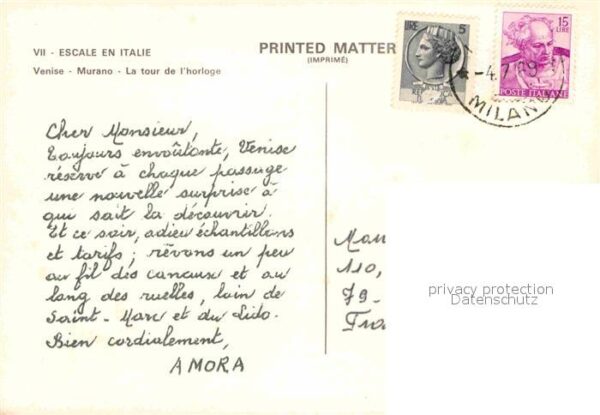 VII - ESCALE EN ITALIE
Venise - Murano - La tour de l'horloge
PRINTED MATTER
(IMPRIMÉ)
5
LIRE
15
LIRE
POSTE ITALIANE
-4.7
MILANO
Cher Monsieur,
Toujours envoûtante, Venise
réserve à chaque passage
une nouvelle surprise à
qui sait la découvrir.
Et ce soir, adieu échantillons
et tarifs ; rêvons un peu
au fil des canaux et au
long des ruelles, loin de
Saint-Marc et du Lido.
Bien cordialement,
AMORA
110,
79-
privacy protection
Datenschutz